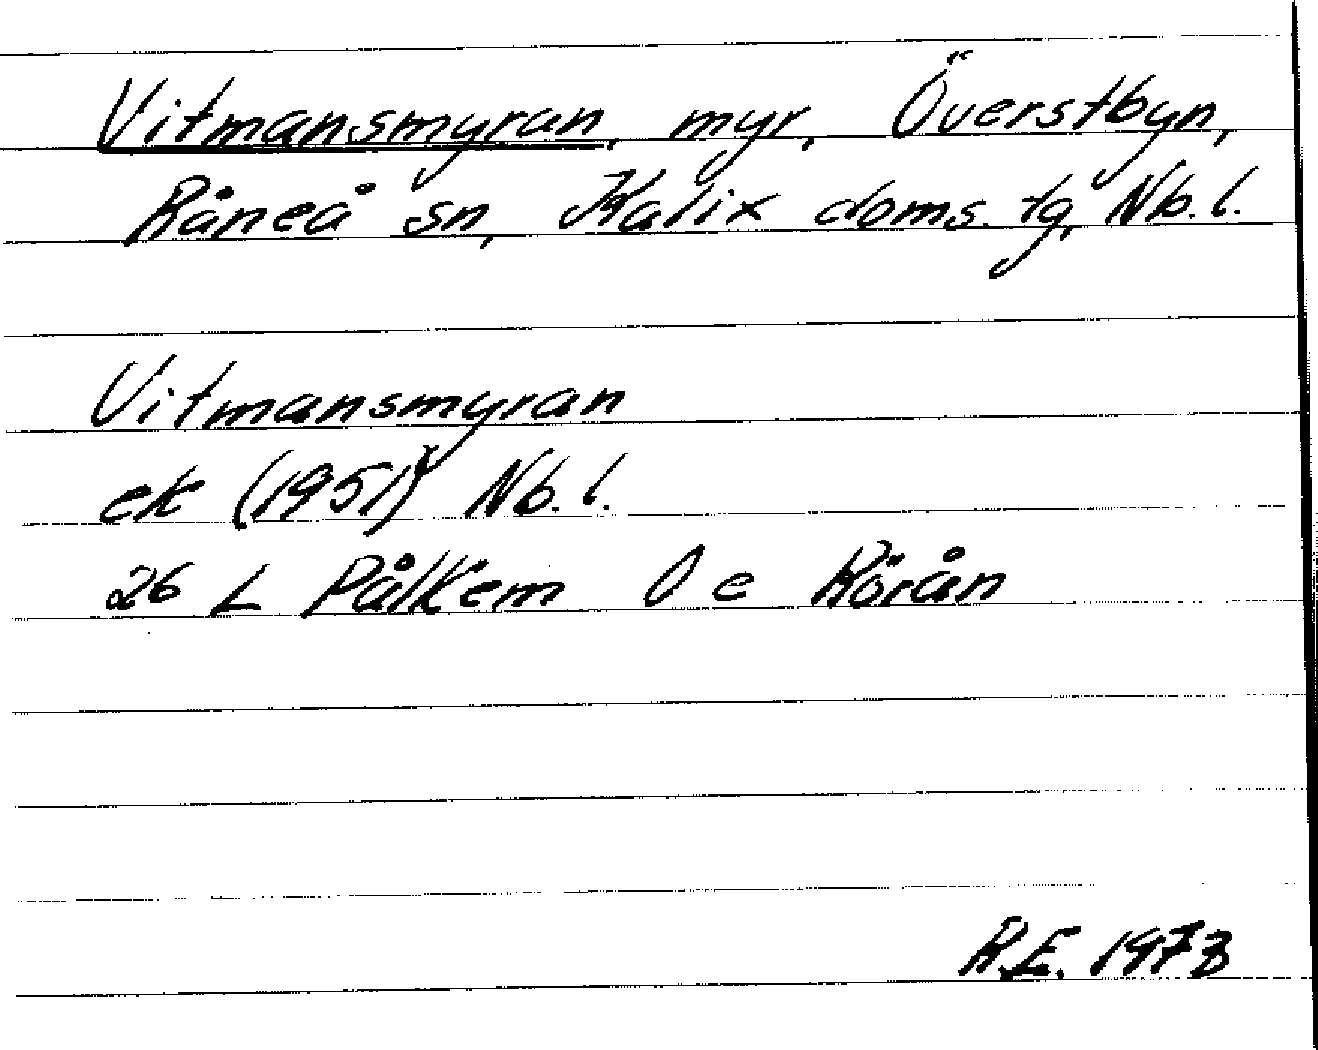 Vitmansmyran, myr, Överstbyn,
Råneå sn, Kalix doms. tg, Nb. l.
Vitmansmyran
ek (1951) Nb. l.
26 L Pålkem 0 e Körån
R.E. 1973